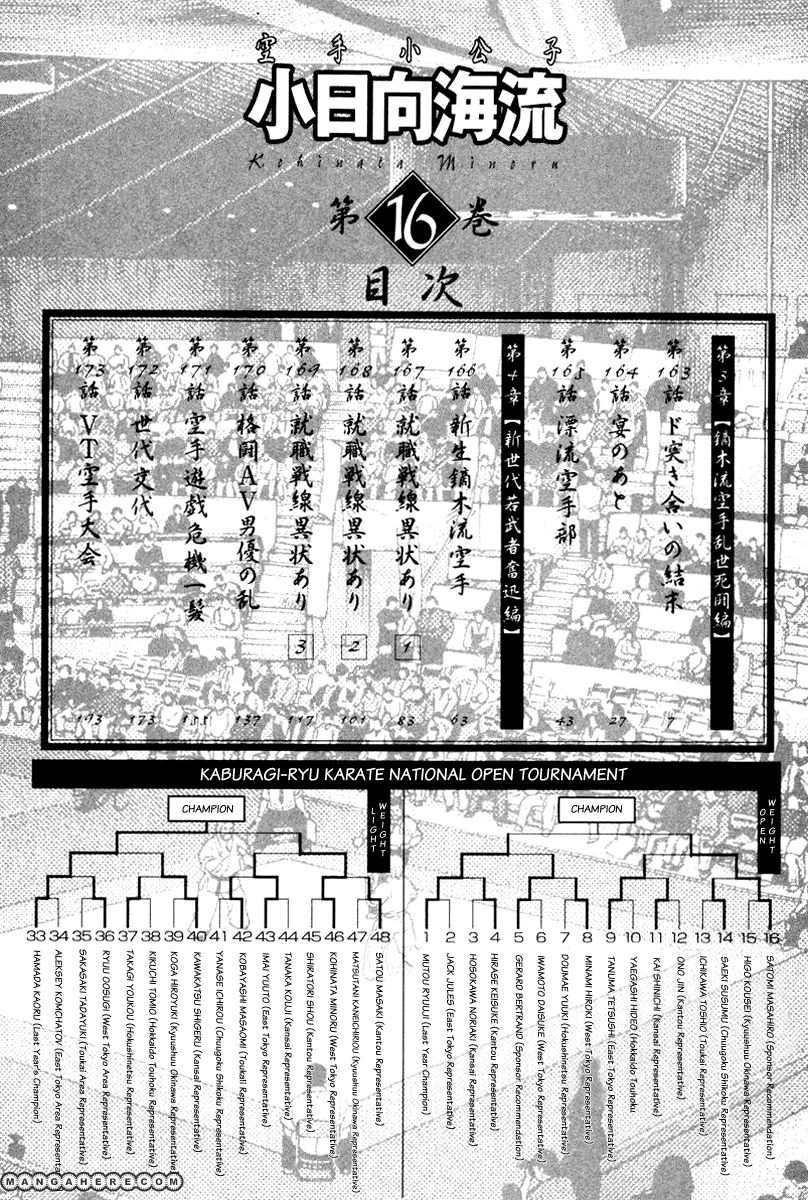 空手小公子
小日向海流
Kohinata Minoru
第16巻
目次
第3章【鏑木流空手乱世死闘編】
第163話 ド突き合いの結末 7
第164話 宴のあと 27
第165話 漂流空手部 43
第4章【新世代若武者奮迅編】
第166話 新生鏑木流空手 63
第167話 就職戦線異状あり 1 83
第168話 就職戦線異状あり 2 101
第169話 就職戦線異状あり 3 117
第170話 格闘AV男優の乱 137
第171話 空手遊戯危機一髪 155
第172話 世代交代 173
第173話 VT空手大会 193
KABURAGI-RYU KARATE NATIONAL OPEN TOURNAMENT
LIGHT WEIGHT
CHAMPION
33 HAMADA KAORU (Last Year's Champion)
34 ALEKSEY KOMCHATOV (East Tokyo Area Representative)
35 SAKASAKI TADAYUKI (Toukai Area Representative)
36 RYUU OOSUGI (West Tokyo Area Representative)
37 TAKAGI YOUKOU (Hokushinetsu Representative)
38 KIKUCHI TOMIO (Hokkaido Touhoku Representative)
39 KOGA HIROYUKI (Kyuushuu Okinawa Representative)
40 KAWAKATSU SHIGERU (Kansai Representative)
41 YANASE ICHIROU (Chuugoku Shikoku Representative)
42 KOBAYASHI MASAOMI (Toukaii Representative)
43 IMAI YUUTO (East Tokyo Representative)
44 TANAKA KOUJI (Kansai Representative)
45 SHIRATORI SHOU (Kantou Representative)
46 KOHINATA MINORU (West Tokyo Representative)
47 MATSUTANI MANEICHIROU (Kyuushuu Okinawa Representative)
48 SATOU MASAKI (Kantou Representative)
OPEN WEIGHT
CHAMPION
1 MUTOU RYUUJI (Last Year Champion)
2 JACK JULES (East Tokyo Representative)
3 HOSOKAWA NORIAKI (Kansai Representative)
4 HIRASE KEISUKE (Kantou Representative)
5 GERARD BERTRAND (Sponsor Recommendation)
6 IWAMOTO DAISUKE (West Tokyo Representative)
7 DOUMAE YUUKI (Hokushinetsu Representative)
8 MINAMI HIROKI (West Tokyo Representative)
9 TANUMA TETSUSHI (East Tokyo Representative)
10 YAEGASHI HIDEO (Hokkaido Touhoku
11 KAI SHINICHI (Kansai Representative)
12 ONO JIN (Kantou Representative)
13 ICHIKAWA TOSHIO (Toukai Representative)
14 SAEKI SUSUMU (Chuugoku Shikoku Representative)
15 HIGO KOUSEI (Kyuushuu Okinawa Representative)
16 SATOMI MASAHIRO (Sponsor Recommendation)
MANGAHERE.COM